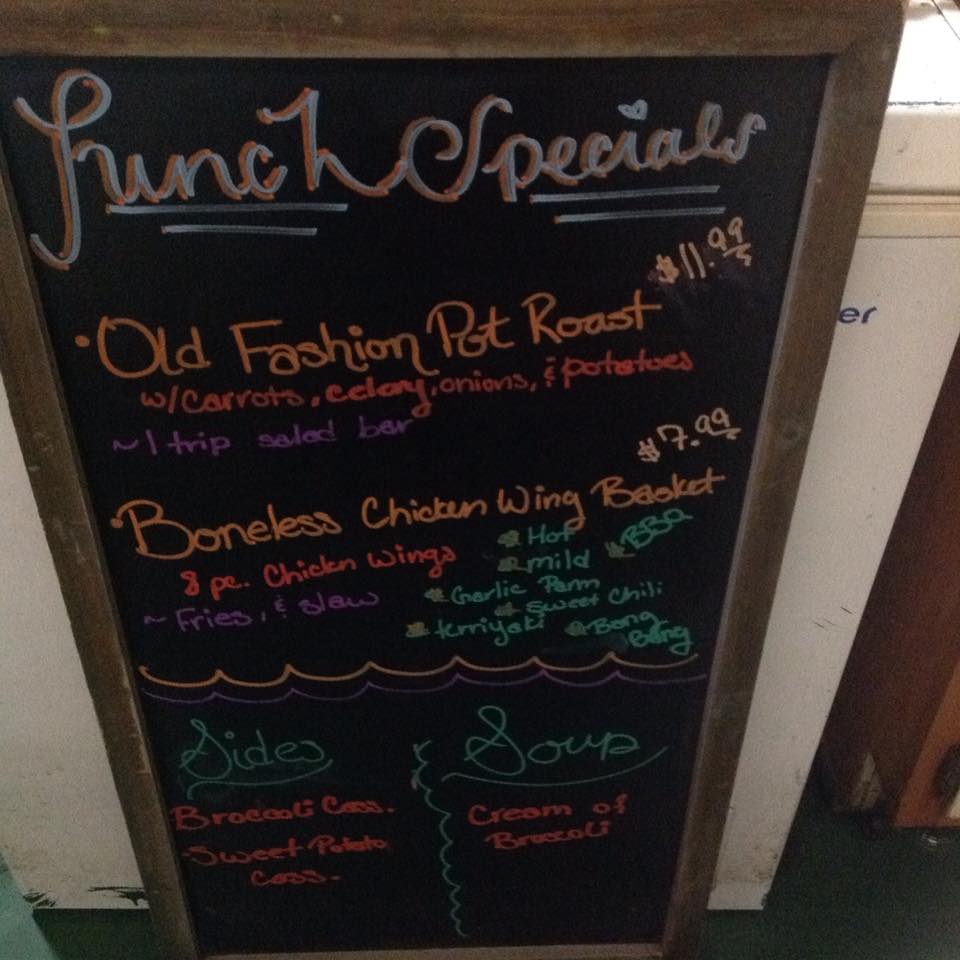 Lunch Specials
$11.99
• Old Fashion Pot Roast
w/Carrots, celery, onions, & potatoes
~ 1 trip salad bar
$7.99
• Boneless Chicken Wing Basket
8 pc. Chicken Wings
~ Fries, & slaw
Hot
BBQ
mild
Garlic Parm
Sweet Chili
terriyaki
Bang Bang
Sides
Broccoli Cass.
Sweet Potato
Cass.
Soup
Cream of
Broccoli
er